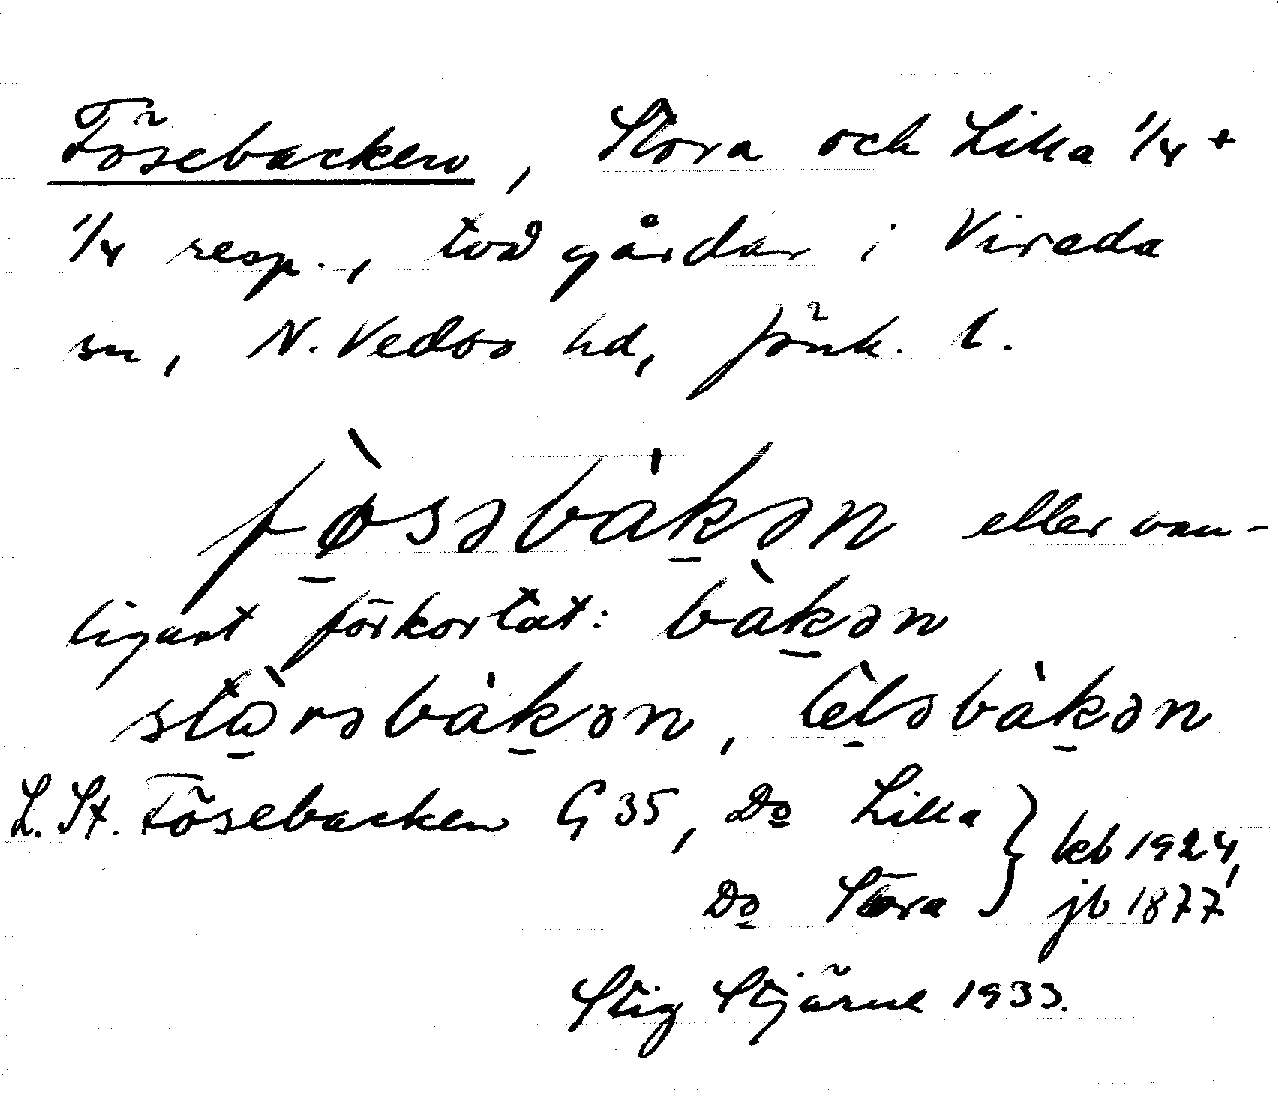 Fösebacken, Stora och Lilla 1/4 +
1/4 resp., två gårdar i Vireda
sn, N. Vedbo hd, Jönk. l.
fø̀səbákən eller van-
ligast förkortat: bàkən
stòrəbákən, lèləbákən
L. St. Fösebacken G 35, Do Lilla
Do Stora } kb 1924,
jb 1877
Stig Stjärne 1933.